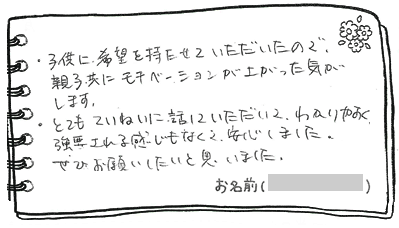 ・子供に、希望を持たせていただいたので、
親子共にモチベーションが上がった気が
します。
・とてもていねいに話していただいて、わかりやすく、
強要される感じもなくて、安心しました。
ぜひお願いしたいと思いました。
お名前( )